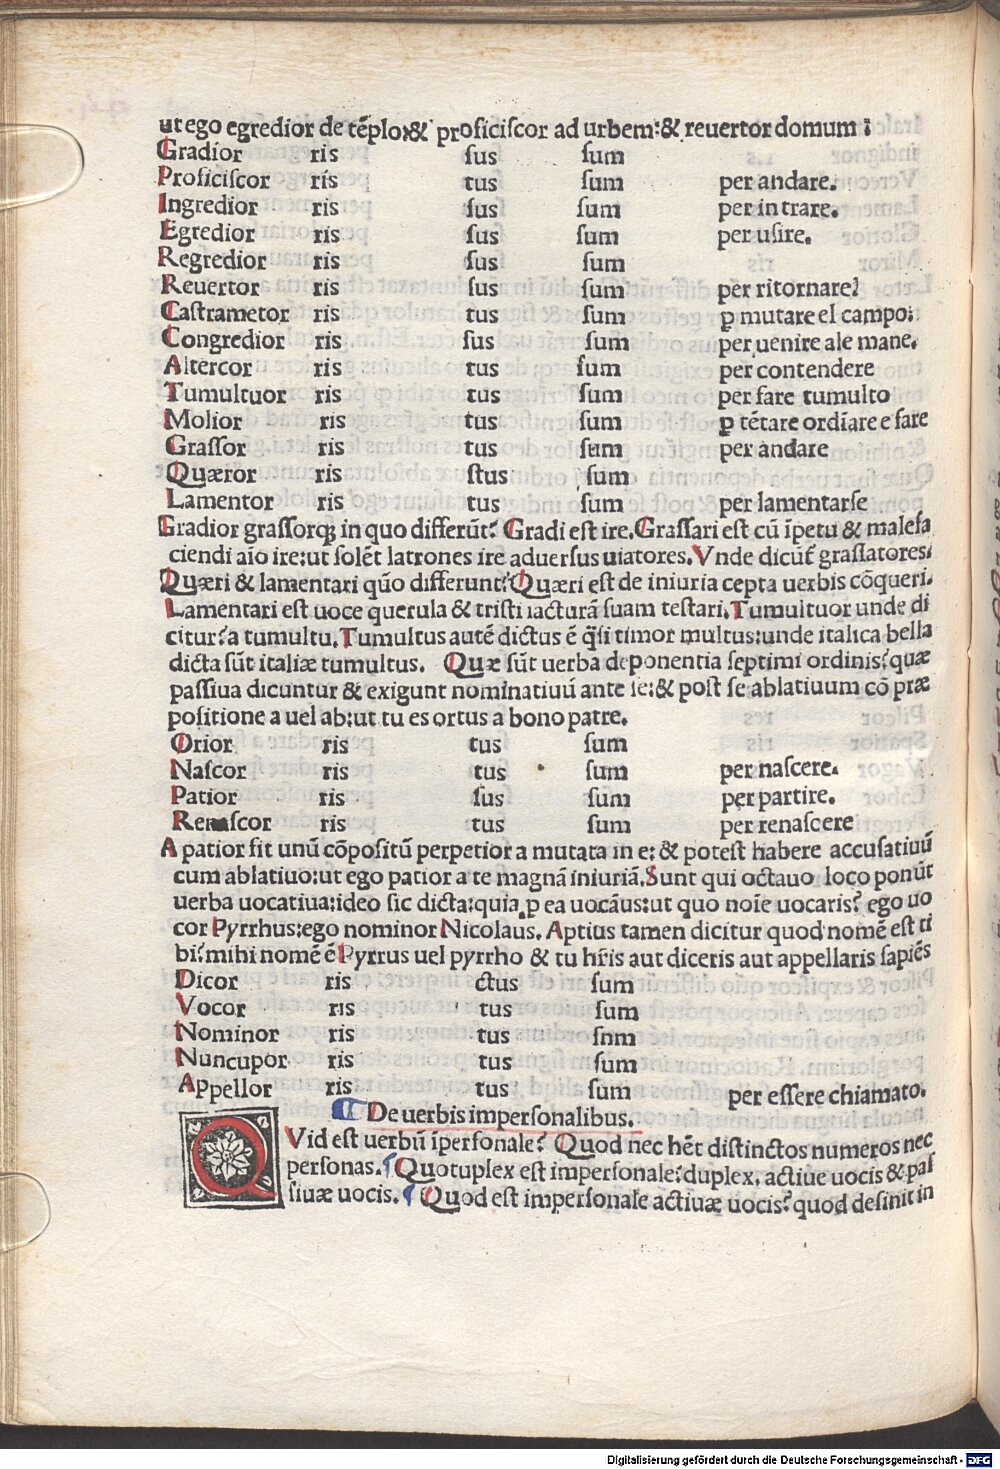 ut ego egredior de tẽplo:& proficiſcor ad urbem:& reuertor domum :
Gradior ris ſus ſum
Proficiſcor ris tus ſum per andare.
Ingredior ris ſus ſum per intrare.
Egredior ris ſus ſum per uſire.
Regredior ris ſus ſum
Reuertor ris ſus ſum per ritornare?
Caſtrametor ris tus ſum ꝑ mutare el campo:
Congredior ris ſus ſum per uenire ale mane.
Altercor ris tus ſum per contendere
Tumultuor ris tus ſum per fare tumulto
Molior ris tus ſum ꝑ tẽtare ordĩare e fare
Graſſor ris tus ſum per andare
Quæror ris ſtus ſum
Lamentor ris tus ſum per lamentarſe
Gradior graſſorqȝ in quo differũt? Gradi eſt ire. Graſſari eſt cũ ĩpetu & malefa
ciendi aĩo ire:ut ſolẽt latrones ire aduerſus uiatores. Vnde dicũt graſſatores.
Quæri & lamentari quõ differunt? Quæri eſt de iniuria cepta uerbis cõqueri.
Lamentari eſt uoce querula & triſti iacturã ſuam teſtari. Tumultuor unde di
citur? a tumultu. Tumultus autẽ dictus ẽ q̃ſi timor multus:unde italica bella
dicta ſũt italiæ tumultus. Quæ ſũt uerba deponentia ſeptimi ordinis? quæ
paſſiua dicuntur & exigunt nominatiuũ ante ſe:& poſt ſe ablatiuum cõ præ
poſitione a uel ab:ut tu es ortus a bono patre.
Orior ris tus ſum
Naſcor ris tus ſum per naſcere.
Patior ris ſus ſum per partire.
Renaſcor ris tus ſum per renaſcere
A patior fit unũ cõpoſitũ perpetior a mutata in e: & poteſt habere accuſatiuũ
cum ablatiuo:ut ego patior a te magnã iniuriã. Sunt qui octauo loco ponũt
uerba uocatiua:ideo ſic dicta:quia ꝑ ea uocãus:ut quo noĩe uocaris? ego uo
cor Pyrrhus:ego nominor Nicolaus. Aptius tamen dicitur quod nomẽ eſt ti
bi? mihi nomẽ ẽ Pyrrus uel pyrrho & tu hr̃is aut diceris aut appellaris ſapiẽs
Dicor ris ctus ſum
Vocor ris tus ſum
Nominor ris tus ſnm
Nuncupor ris tus ſum
Appellor ris tus ſum per eſſere chiamato.
¶ De uerbis imperſonalibus.
QVid eſt uerbũ ĩperſonale? Quod nec hẽt diſtinctos numeros nec
perſonas. ¶ Quotuplex eſt imperſonale? duplex. actiue uocis & paſ
ſiuæ uocis. ¶ Quod eſt imperſonale actiuæ uocis? quod definit in
Digitalisierung gefördert durch die Deutsche Forschungsgemeinschaft - DFG